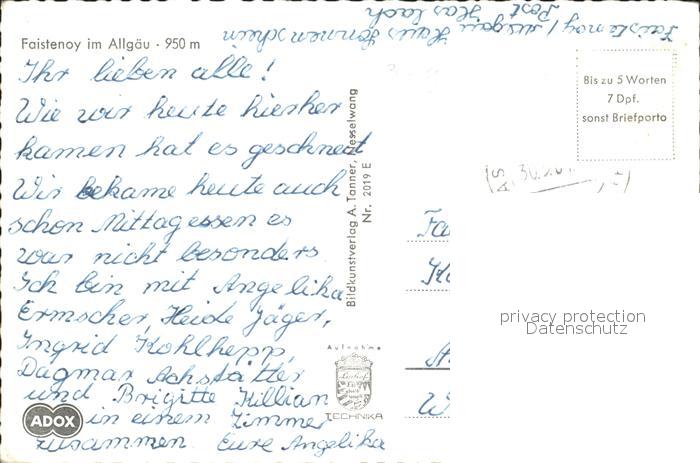 Faistenoy im Allgäu · 950 m
Faistenoy / Allgäu Haus Sonnenschein
Post Haslach
Ihr lieben alle!
Wie wir heute hierher
kamen hat es geschneit
Wir bekame heute auch
schon Mittagessen es
war nicht besonders.
Ich bin mit Angelika
Ermscher, Heide Jäger,
Ingrid Kohlhepp,
Dagmar Achstätter
und Brigitte Killian
in einem Zimmer
zusammen Eure Angelika
ADOX
Bildkunstverlag A. Tanner, Nesselwang
Nr. 2019 E
Aufnahme
TECHNIKA
Bis zu 5 Worten
7 Dpf.
sonst Briefporto
Fa
privacy protection
Datenschutz